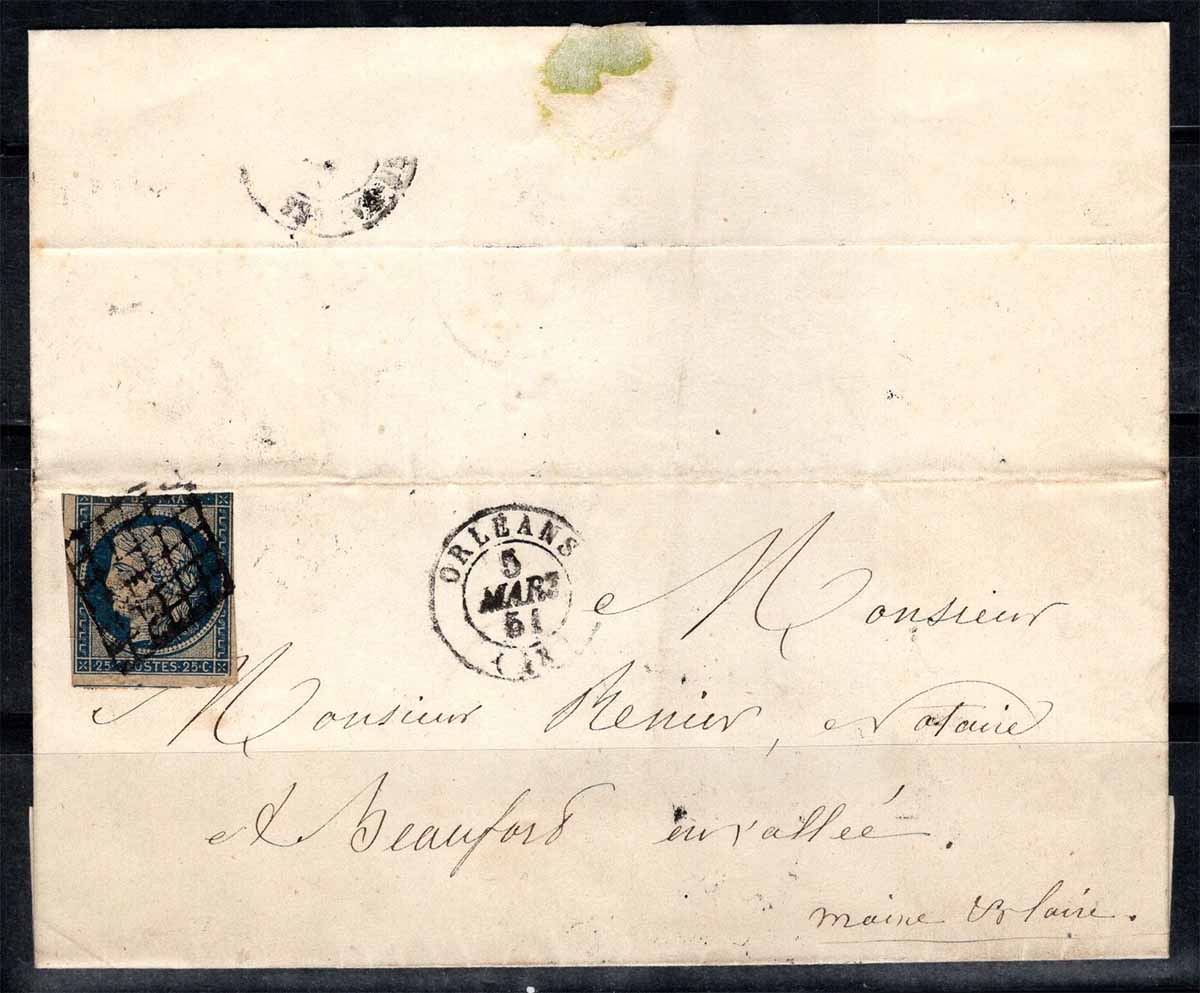 ORLÉANS
5
MARS
51
25 · POSTES · 25 · C
Monsieur
Monsieur Renier, Notaire
A Beaufort en vallée.
Maine & Loire.